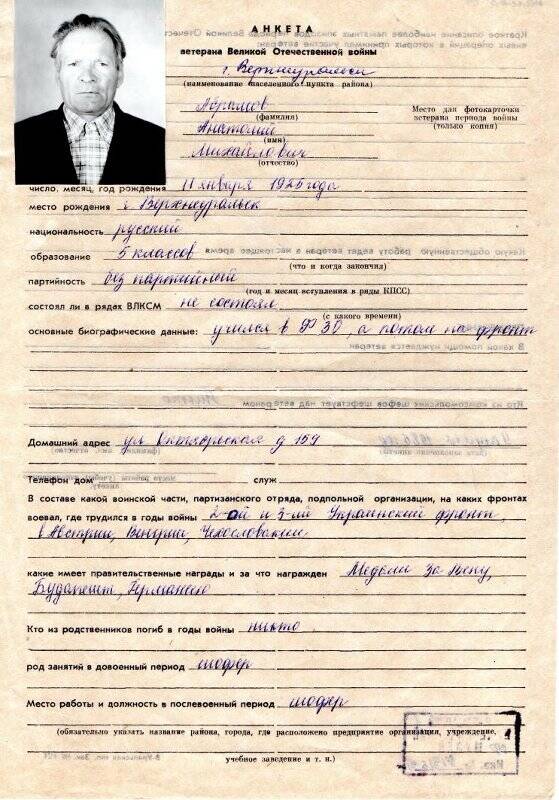 АНКЕТА
ветерана Великой Отечественной войны
г. Верхнеуральск
(наименование населенного пункта района)
Абрамов
(фамилия)
Анатолий
(имя)
Михайлович
(отчество)
Место для фотокарточки
ветерана периода войны
(только копия)
число, месяц, год рождения 11 января 1925 года
место рождения г. Верхнеуральск
национальность русский
образование 5 классов
(что и когда закончил)
партийность без партийный
(год и месяц вступления в ряды КПСС)
состоял ли в рядах ВЛКСМ не состоял
(с какого времени)
основные биографические данные: учился в ФЗО, а потом на фронт
Домашний адрес ул Октябрьская д 159
Телефон дом служ
В составе какой воинской части, партизанского отряда, подпольной организации, на каких фронтах
воевал, где трудился в годы войны 2-ой и 3-ий Украинский фронт,
в Австрии, Венгрии, Чехословакии
какие имеет правительственные награды и за что награжден Медали За Вену,
Будапешт, Германию
Кто из родственников погиб в годы войны никто
род занятий в довоенный период шофер
Место работы и должность в послевоенный период шофер
(обязательно указать название района, города, где расположено предприятие организация, учреждение,
учебное заведение и т. п.)